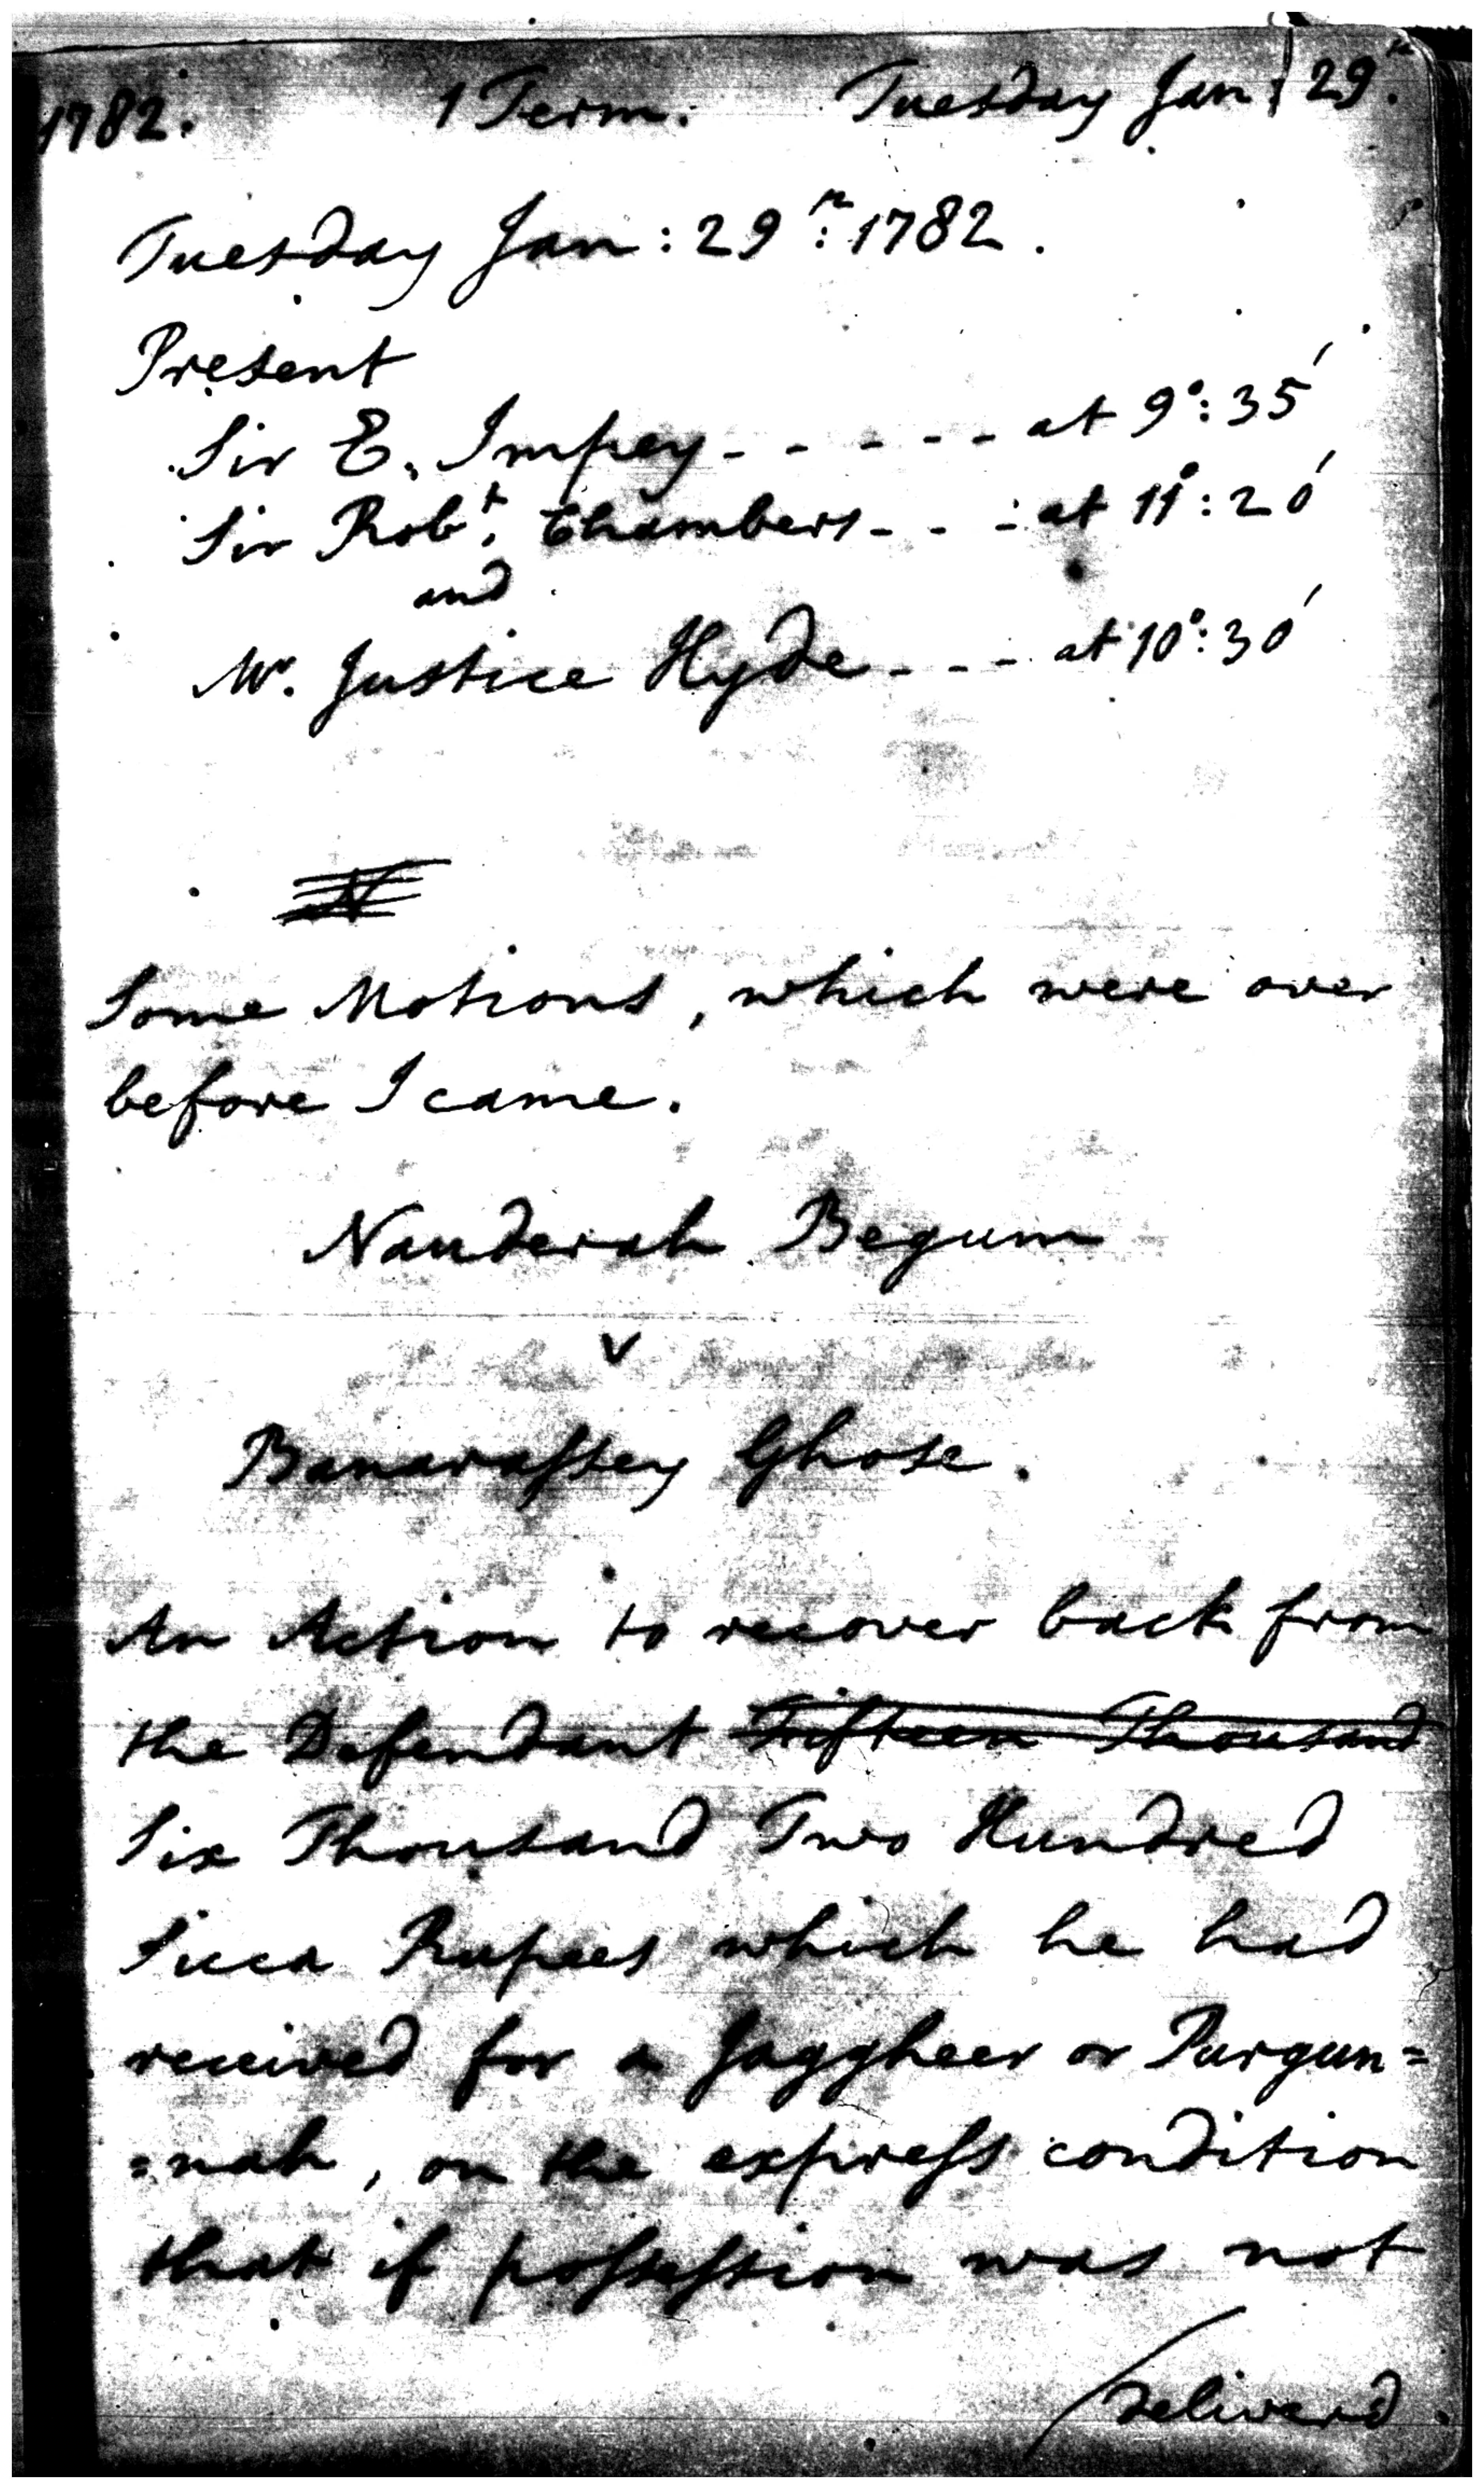 1782. 1 Term. Tuesday Jan: 29th.
Tuesday Jan: 29th: 1782.
Present
Sir E. Impey - - - - - at 9°: 35′
Sir Robt. Chambers - - - at 11°: 20′
and
Mr. Justice Hyde - - - at 10°: 30′
N
Some Motions, which were over
before I came.
Nauderah Begum
v
Banarassey Ghose.
An Action to recover back from
the Defendant Fifteen Thousand
Six Thousand Two Hundred
Sicca Rupees which he had
received for a Jaggheer or Purgun=
=nah, on the express condition
that if possession was not
deliverd